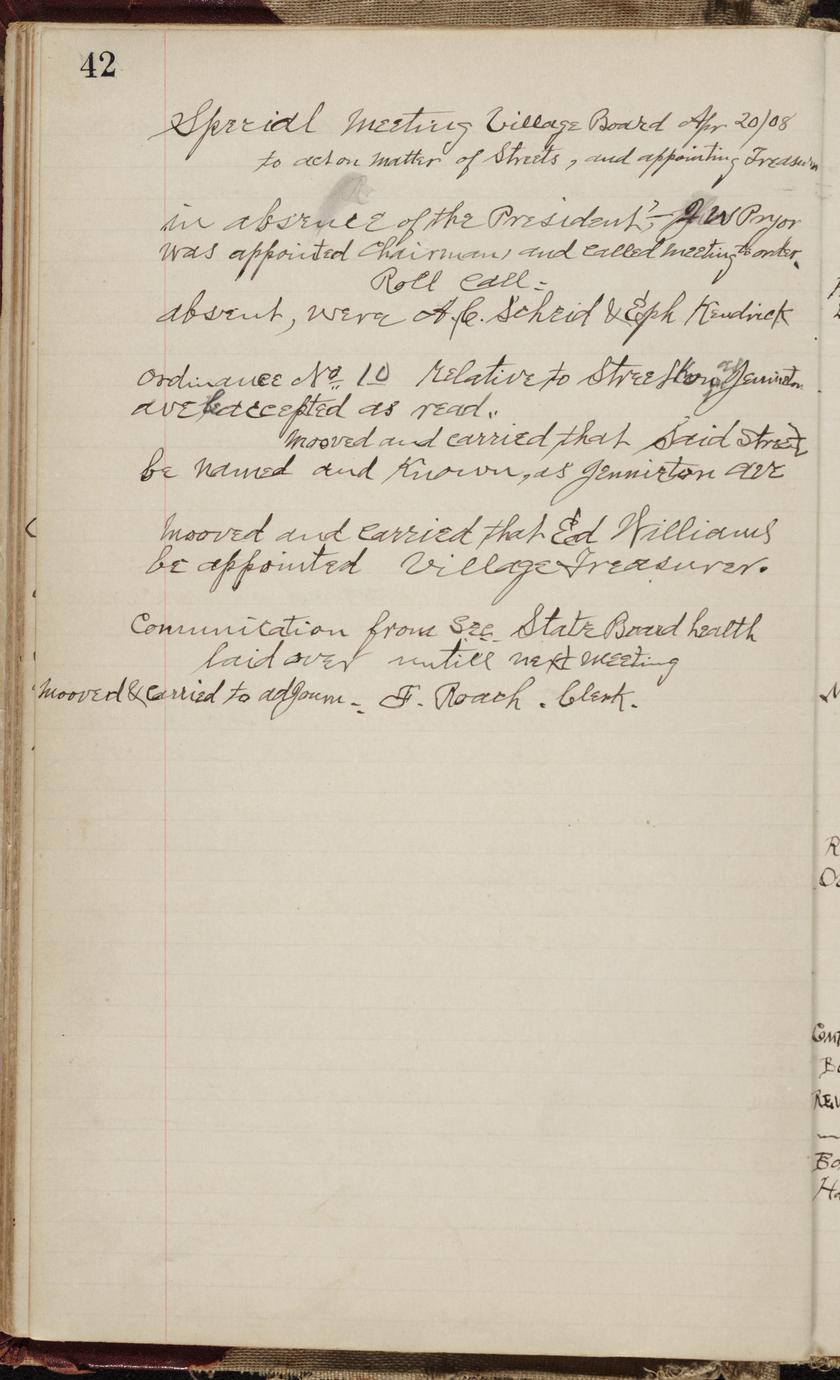 42
Special Meeting Village Board Apr 20/08
to act on matter of Streets, and appointing Treasurer
in absence of the President, J W Pryor
was appointed Chairman, and called meeting to order.
Roll Call -
absent, were A. C. Scheid & Eph Kendrick
Ordinance No 10 Relative to Street
ave be accepted as read.
Mooved and carried that Said Street
be named and Known, as Jennieton ave
Mooved and carried that Ed Williams
be appointed Village Treasurer.
Comunication from Sec State Board health
laid over untill next meeting
Mooved & Carried to adjourn - F. Roach. Clerk.